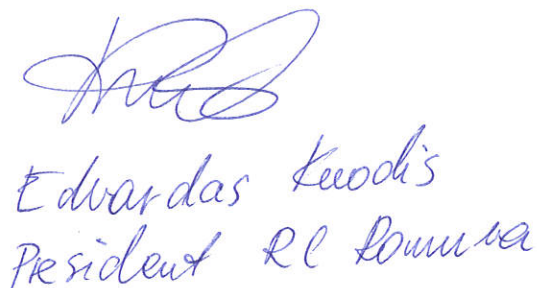 Edvardas Knodis
President RC Romuva